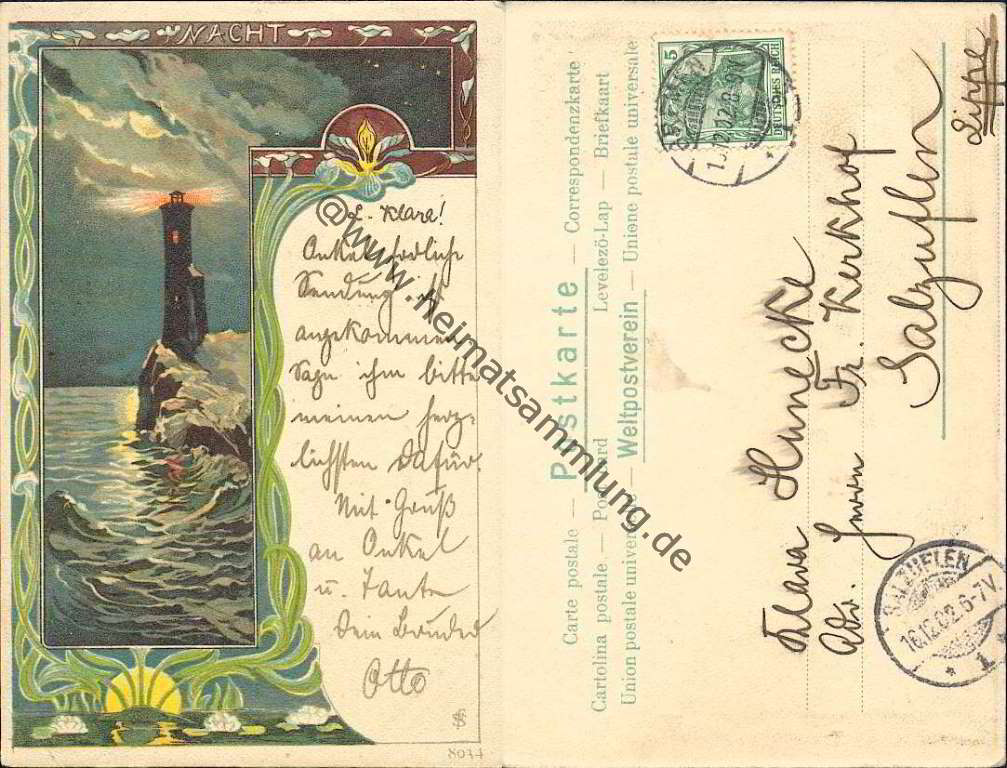 NACHT
L. Klara!
Onkels
Sendung ist
angekommen
Sage ihm bitte
meinen herz-
lichsten dafür.
Mit Gruß
an Onkel
u. Tante
Dein Bruder
Otto
8034
@www.heimatsammlung.de
Carte postale — Postkarte — Correspondenzkarte
Cartolina postale — Post card Levelezö-Lap — Briefkaart
Union postale universelle — Weltpostverein — Unione postale universale
5
DEUTSCHES REICH
BREMEN
15.12.02.8-9N
1
Klara Hunnecke
Adr. Herrn Fr. Kerkhof
Salzuflen
Lippe
SALZUFLEN
16.12.02.6-7V.
* 1